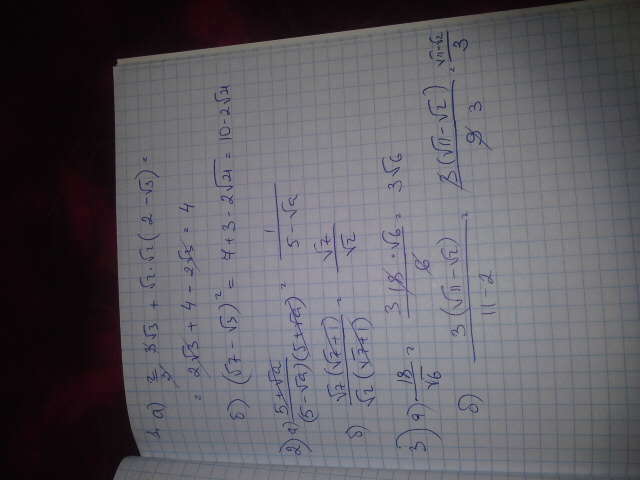 1. а) 2/3 · 3√3 + √2·√2(2 − √3) =
= 2√3 + 4 − 2√3 = 4
б) (√7 − √3)² = 7 + 3 − 2√21 = 10 − 2√21
2) а) (5+√a)/((5−√a)(5+√a)) = 1/(5−√a)
б) (√7(√7+1))/(√2(√7+1)) = √7/√2
3) а) 18/√6 = (3 18·√6)/6 = 3√6
б) (3(√11−√2))/(11−2) = (3(√11−√2))/(9 3) = (√11−√2)/3